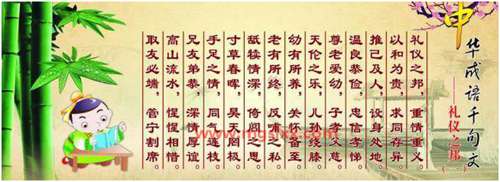 中华成语千句文
——礼仪之邦
礼仪之邦，重情重义
以和为贵，求同存异
推己及人，设身处地
温良恭俭，忠信孝悌
尊老爱幼，子孝父慈
天伦之乐，儿孙绕膝
幼有所养，关怀备至
老有所终，反哺之私
舐犊情深，倚闾之思
寸草春晖，昊天罔极
手足之情，同气连枝
兄友弟恭，深情厚谊
高山流水，惺惺相惜
取友必端，管宁割席